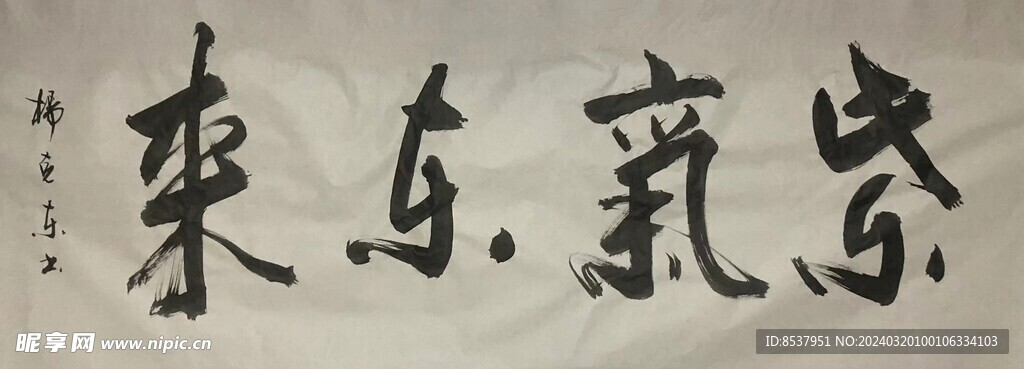 紫氣东来
楊克东书
昵享网 www.nipic.cn
ID:8537951 NO:20240320100106334103